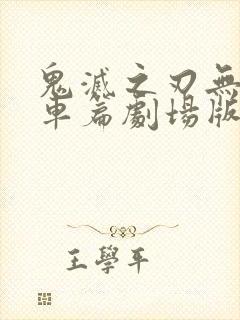 鬼滅之刃無
車篇劇場版
王學平